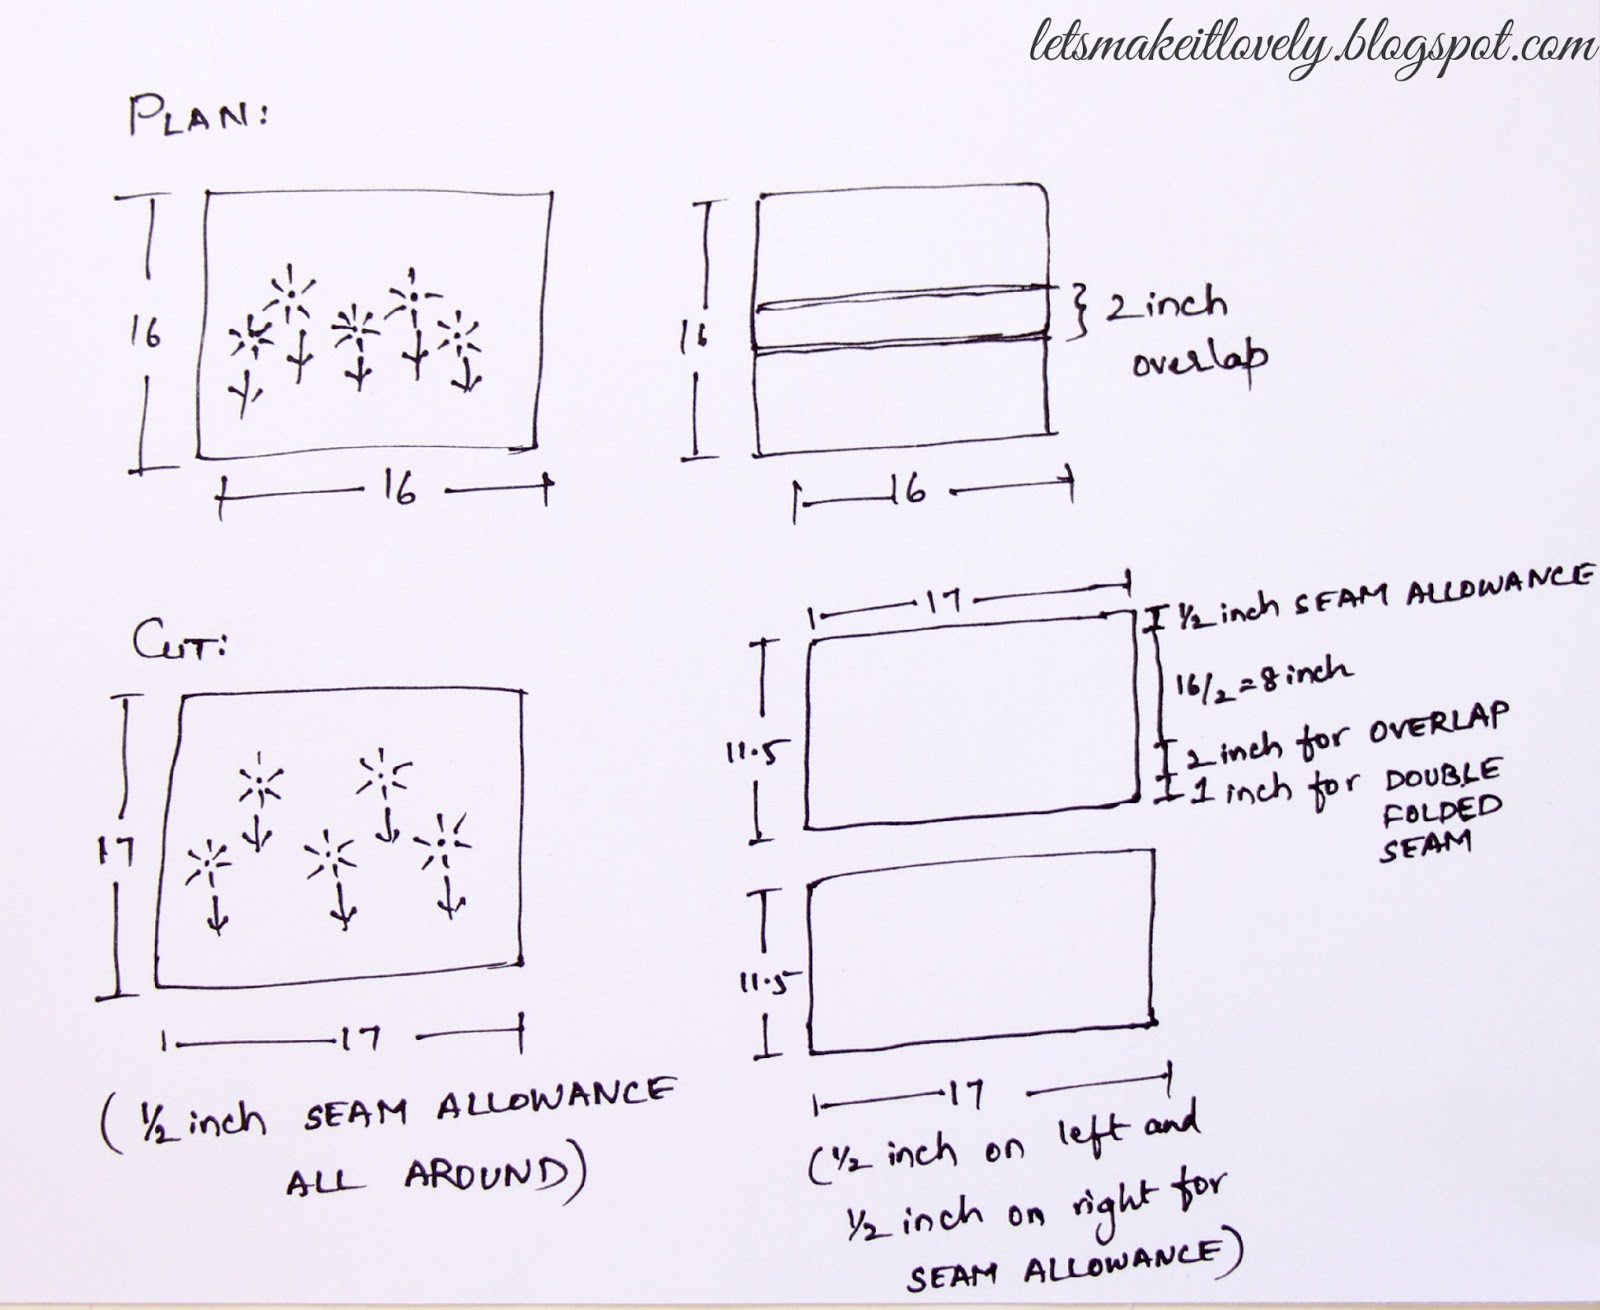 letsmakeitlovely.blogspot.com
PLAN:
16
16
16
16
2 inch
overlap
CUT:
17
17
(1/2 inch SEAM ALLOWANCE
ALL AROUND)
17
11.5
1/2 inch SEAM ALLOWANCE
16/2 = 8 inch
2 inch for OVERLAP
1 inch for DOUBLE
FOLDED
SEAM
11.5
17
(1/2 inch on left and
1/2 inch on right for
SEAM ALLOWANCE)